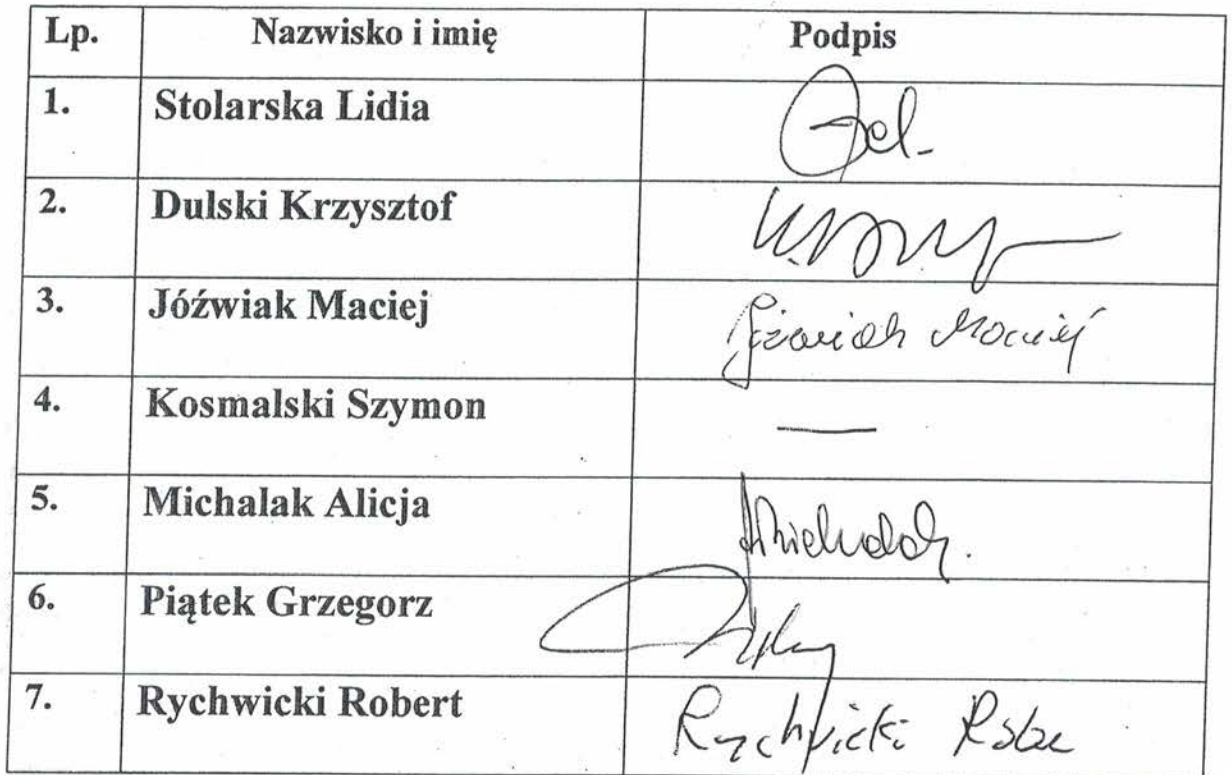 Lp. Nazwisko i imię Podpis
1. Stolarska Lidia
2. Dulski Krzysztof
3. Jóźwiak Maciej Jóźwiak Maciej
4. Kosmalski Szymon —
5. Michalak Alicja AMichalak.
6. Piątek Grzegorz
7. Rychwicki Robert Rychwicki